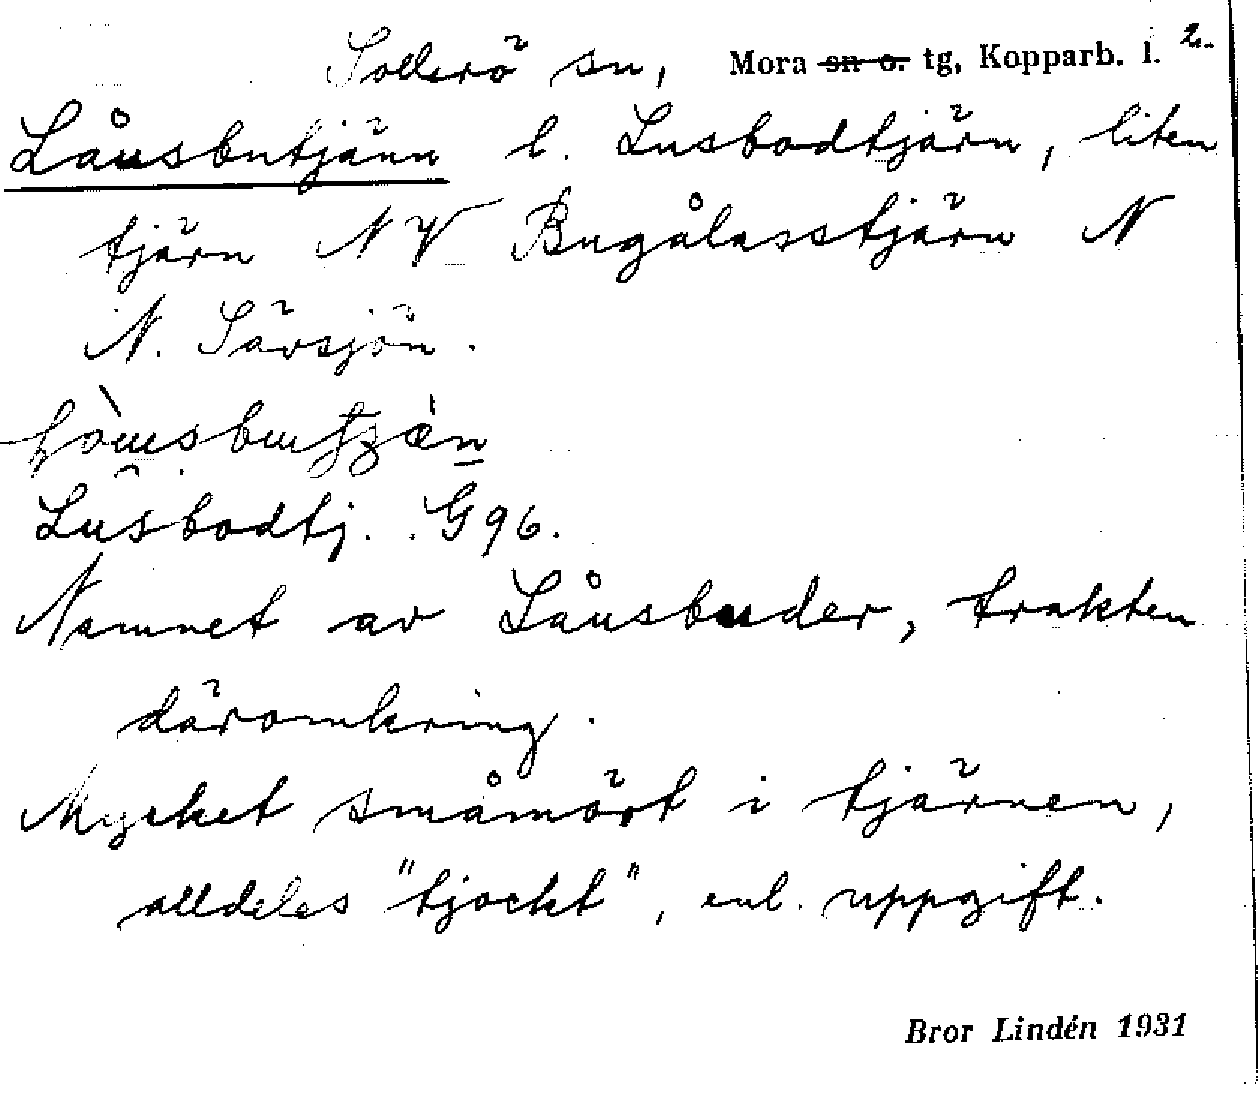 Sollerö sn, Mora sn o. tg, Kopparb. l. 2.
Låusbutjänn l. Lusbodtjärn, liten
tjärn NV Bugålasstjärn N
N. Sävsjön.
Lusbodtj. G96.
Namnet av Låusbuder, trakten
däromkring.
Mycket småmört i tjärnen,
alldeles "tjockt", enl. uppgift.
Bror Lindén 1931